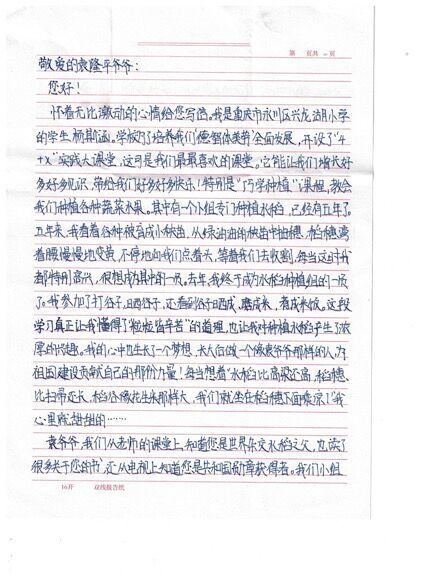 第 页共 页
敬爱的袁隆平爷爷：
您好！
怀着无比激动的心情给您写信。我是重庆市永川区兴龙湖小学
的学生杨 涵。学校为了培养我们德智体美劳全面发展，开设了“4
+x”实践大课堂，这可是我们最最喜欢的课堂。它能让我们增长好
多好多见识，带给我们好多好多快乐！特别是“巧学种植”课程，教会
我们种植各种蔬菜水果。其中有一个小组专门种植水稻，已经有五年了。
五年来，我看着谷种被育成小秧苗，从绿油油的秧苗中抽穗，稻穗弯
着腰慢慢地变黄，不停地向我们点着头，等着我们去收割，每当这时我
都特别高兴，很想成为其中的一员。去年，我终于成为水稻种植组的一员
了。我参加了打谷子，晒谷子，还看到谷子晒成，磨成米，煮成米饭。这段
学习真正让我懂得了“粒粒皆辛苦”的道理，也让我对种植水稻产生了浓
厚的兴趣。我的心中也生长了一个梦想，长大后做一个像袁爷爷那样的人，为
祖国建设贡献自己的那份力量！每当想着“水稻比高粱还高，稻穗
比扫帚还长，稻谷像花生米那样大，我们就坐在稻穗下面乘凉！”我
心里就甜甜的……
袁爷爷，我们从老师的课堂上知道您是世界杂交水稻之父，也读了
很多关于您的书，还从电视上知道您是共和国勋章获得者。我们小组
16开 双线报告纸